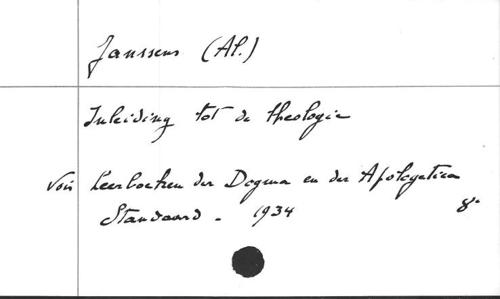 Janssens (Al.)
Inleiding tot de theologie
Voir Leerboeken der Dogma en der Apologetica
Standaard - 1934 8°